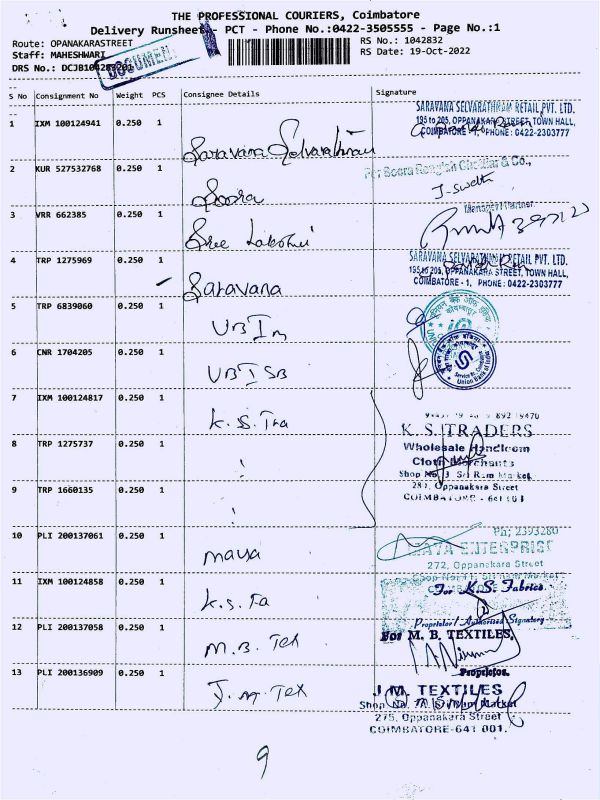 THE PROFESSIONAL COURIERS, Coimbatore
Delivery Runsheet - PCT - Phone No.:0422-3505555 - Page No.:1
Route: OPANAKARASTREET
RS No.: 1042832
Staff: MAHESHWARI
RS Date: 19-Oct-2022
DRS No.: DCJB104283201
DOCUMENT
S No Consignment No Weight PCS Consignee Details Signature
1 IXM 100124941 0.250 1 Saravana Selvarathnam
SARAVANA SELVARATHNAM RETAIL PVT. LTD.
195 to 205, OPPANAKARA STREET, TOWN HALL,
COIMBATORE - 1, PHONE: 0422-2303777
2 KUR 527532768 0.250 1 Soora
J. Swetha
3 VRR 662385 0.250 1 Sree Lakshmi
Manager/Partner
4 TRP 1275969 0.250 1 Saravana
SARAVANA SELVARATHNAM RETAIL PVT. LTD.
195 to 205, OPPANAKARA STREET, TOWN HALL,
COIMBATORE - 1, PHONE: 0422-2303777
5 TRP 6839060 0.250 1 UBI m
6 CNR 1704205 0.250 1 UBI SB
Union Bank of India
7 IXM 100124817 0.250 1 K. S. Tra
K. S. TRADERS
Wholesale Handloom
Cloth Merchants
Shop No. 3 Sri Ram Market
281, Oppanakara Street
COIMBATORE - 641 001
8 TRP 1275737 0.250 1
9 TRP 1660135 0.250 1
10 PLI 200137061 0.250 1 maya
Ph; 2393280
MAYA ENTERPRISE
272, Oppanakara Street
11 IXM 100124858 0.250 1 K.S. Fa
For K.S. Fabrics
Proprietor / Authorised Signatory
12 PLI 200137058 0.250 1 M.B. Tex
For M. B. TEXTILES,
Proprietor.
13 PLI 200136909 0.250 1 J. M. Tex
J. M. TEXTILES
275, Oppanakara Street
COIMBATORE-641 001.
9